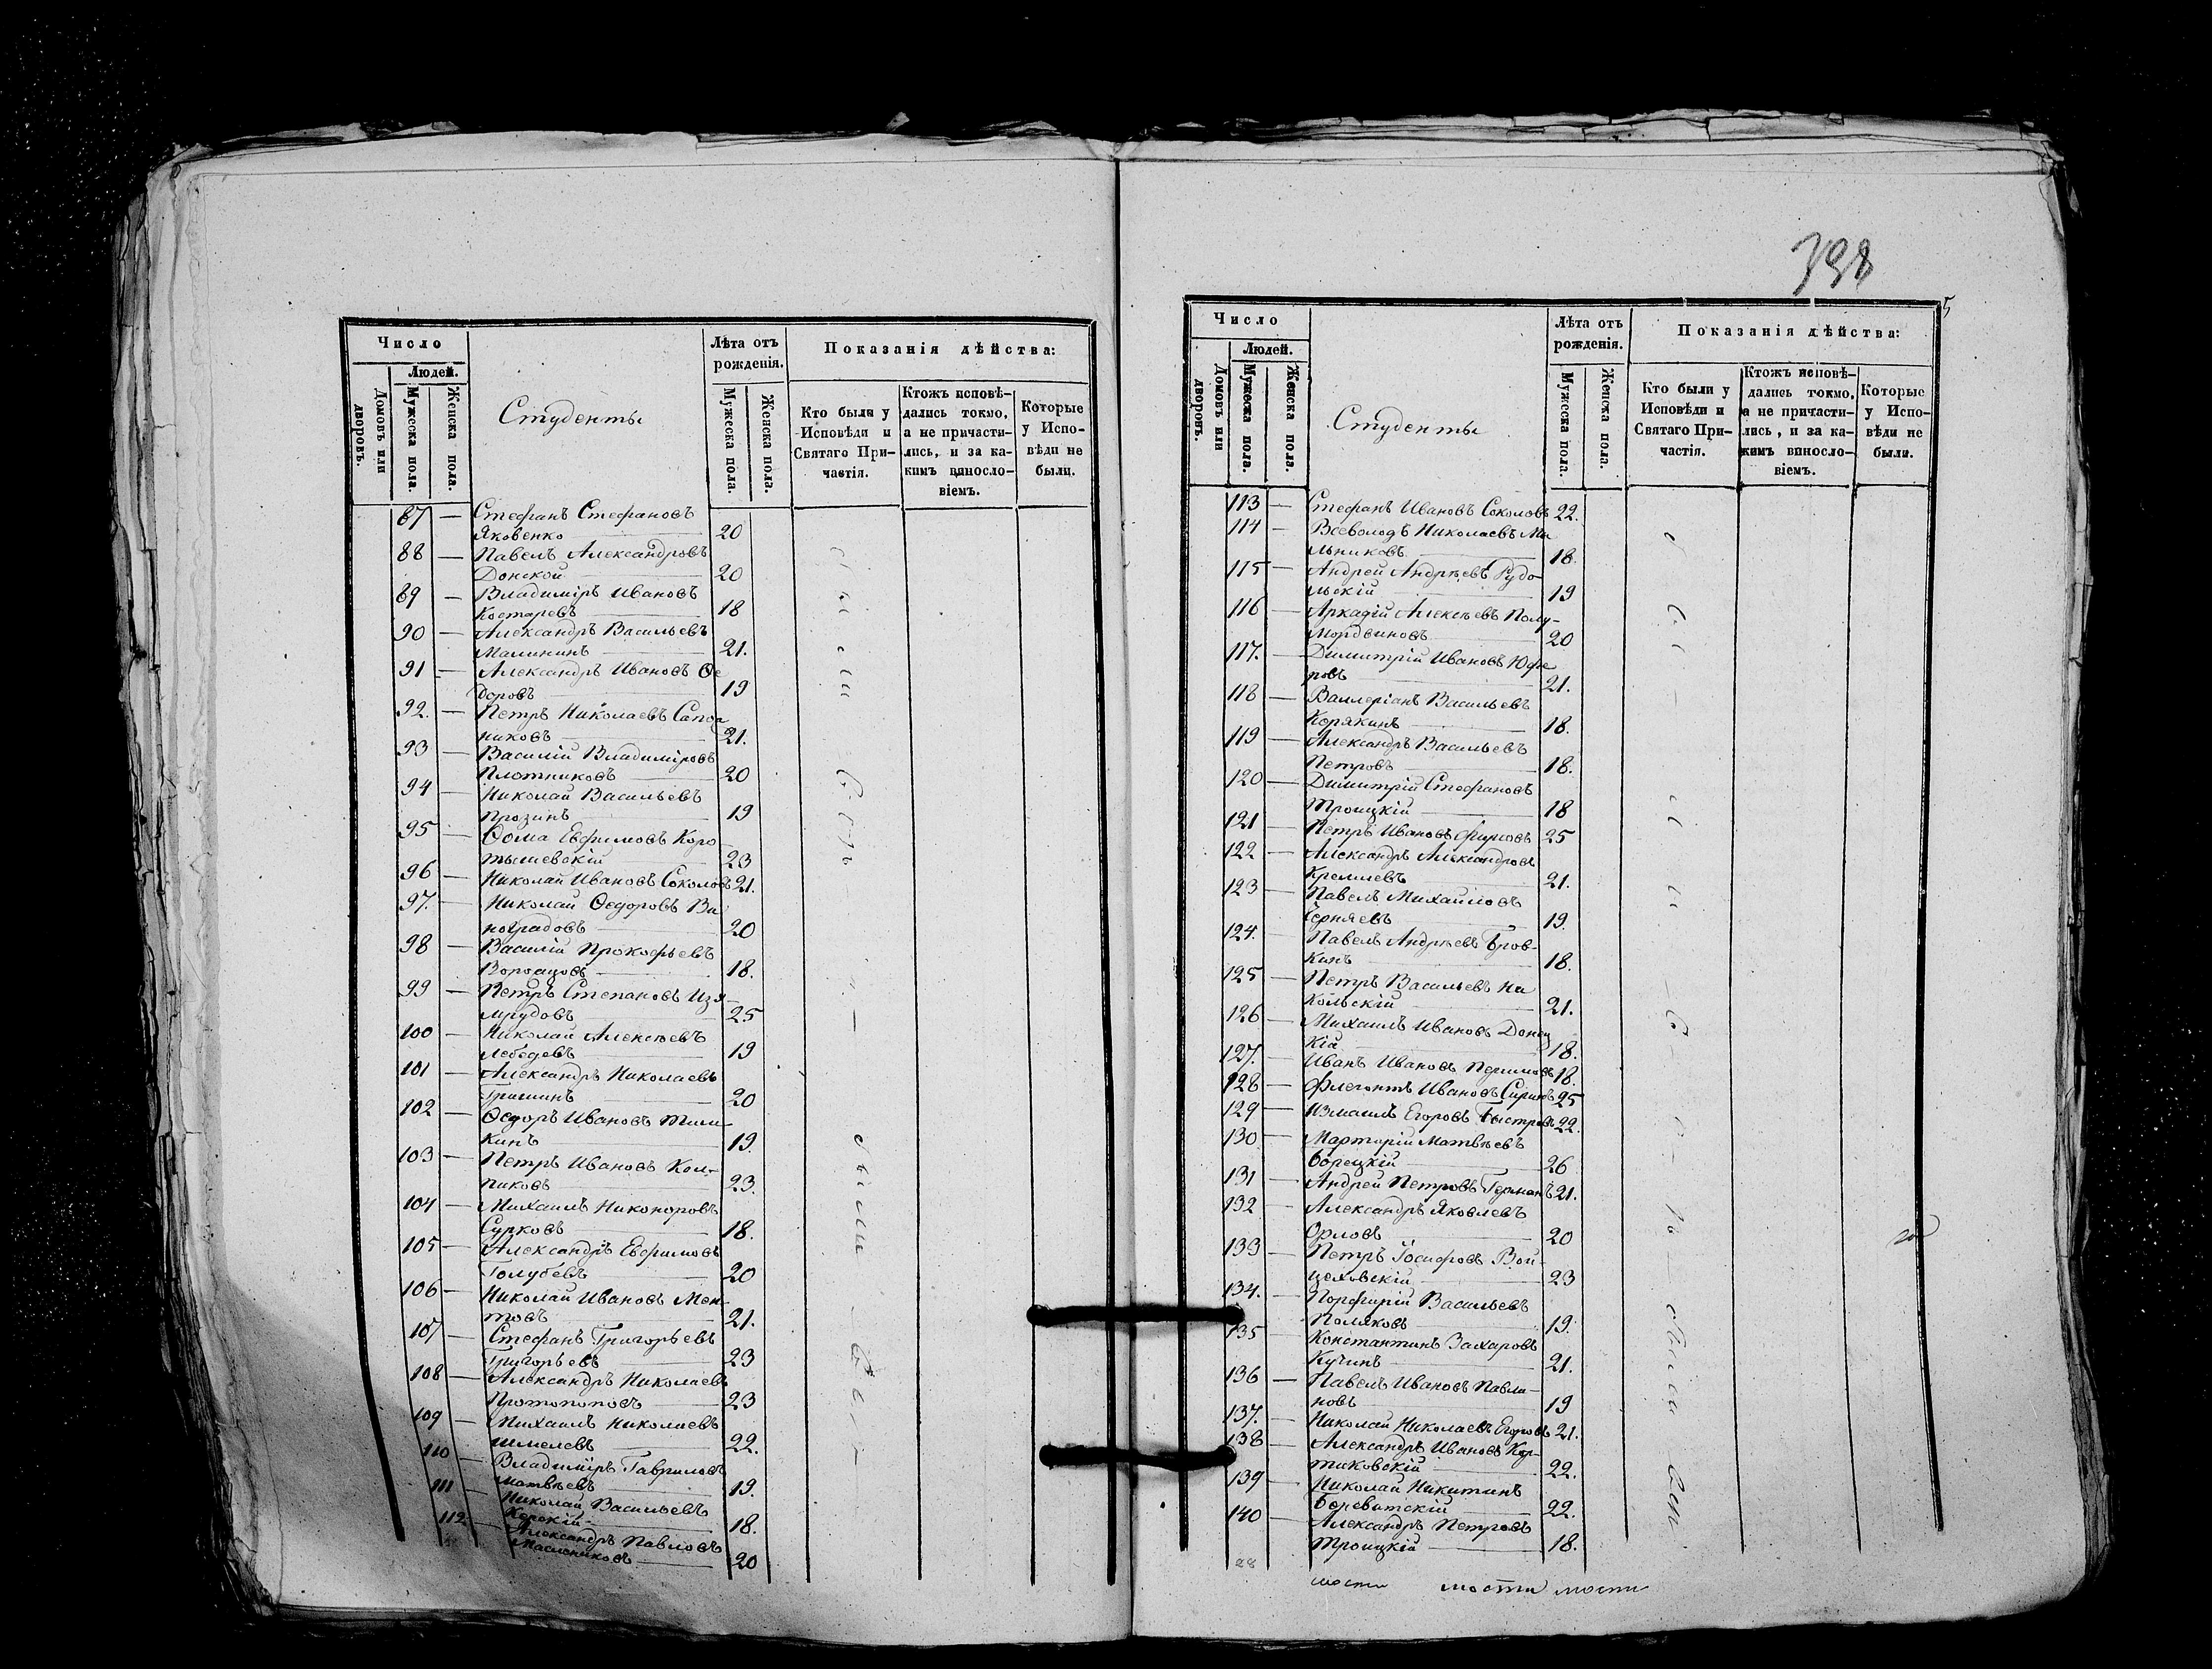 Число
Людей.
Домовъ или дворовъ.
Мужеска пола.
Женска пола.
Студенты
Лѣта отъ рожденія.
Мужеска пола.
Женска пола.
Показанія дѣйства:
Кто были у Исповѣди и Святаго Причастія.
Ктожъ исповѣдались токмо, а не причастились, и за какимъ винословіемъ.
Которые у Исповѣди не были.
87 — Стефанъ Стефановъ
Яковенко — 20
88 — Павелъ Александровъ
Донской — 20
89 — Владиміръ Ивановъ
Костаревъ — 18
90 — Александръ Васильевъ
Малининъ — 21.
91 — Александръ Ивановъ Ѳе
доровъ — 19
92. — Петръ Николаевъ Сапож
никовъ — 21.
93 — Василій Владиміровъ
Плотниковъ — 20
94 — Николай Васильевъ
Прозинъ — 19
95 — Ѳома Евфимовъ Коро
тышевскій — 23
96 — Николай Ивановъ Соколовъ 21.
97. — Николай Ѳедоровъ Ви
ноградовъ — 20
98 — Василій Прокофьевъ
18.
99 — Петръ Степановъ Изу-
мрудовъ — 25
100 — Николай Алексѣевъ
Лебедевъ — 19
101 — Александръ Николаевъ
Гришинъ — 20
102 — Ѳедоръ Ивановъ Тили-
кинъ — 19.
103 — Петръ Ивановъ Кол-
паковъ — 23.
104 — Михаилъ Никоноровъ
Сурковъ — 18.
105 — Александръ Евфимовъ
Голубевъ — 20
106 — Николай Ивановъ Мен-
товъ — 21.
107 — Стефанъ Григорьевъ
Григорьевъ — 23
108 — Александръ Николаевъ
Протопоповъ — 23
109 — Михаилъ Николаевъ
Шмелевъ — 22.
110 — Владиміръ Гавриловъ
Матвѣевъ — 19.
111 — Николай Васильевъ
18.
112. — Александръ Павловъ
Масленниковъ — 20
398
5
Число
Людей.
Домовъ или дворовъ.
Мужеска пола.
Женска пола.
Студенты
Лѣта отъ рожденія.
Мужеска пола.
Женска пола.
Показанія дѣйства:
Кто были у Исповѣди и Святаго Причастія.
Ктожъ исповѣдались токмо, а не причастились, и за какимъ винословіемъ.
Которые у Исповѣди не были.
113 — Стефанъ Ивановъ Соколовъ 22.
114 — Всеволодъ Николаевъ Ми
льниковъ — 18.
115 — Андрей Андрѣевъ Рудо-
льскій — 19
116 — Аркадій Алексѣевъ Полу-
мордвиновъ — 20
117. — Димитрій Ивановъ Юфе
ровъ — 21.
118 — Валлеріанъ Васильевъ
Корякинъ — 18.
119 — Александръ Васильевъ
Петровъ — 18.
120 — Димитрій Стефановъ
Троицкій — 18
121 — Петръ Ивановъ Фирсовъ 25
122 — Александръ Александровъ
Кремлевъ — 21.
123 — Павелъ Михайловъ
Черняевъ — 19.
124. — Павелъ Андрѣевъ Бров-
кинъ — 18.
125 — Петръ Васильевъ Ни
кольскій — 21.
126 — Михаилъ Ивановъ Донец
кій — 18.
127. — Иванъ Ивановъ 18.
128 — Флегонтъ Ивановъ 25
129 — Измаилъ Егоровъ Быстровъ 22.
130 — Мартирій Матвѣевъ
Борецкій — 26
131 — Андрей Петровъ Германъ 21.
132 — Александръ Яковлевъ
Орловъ — 20
133 — Петръ Іосифовъ Вой-
цеховскій — 23
134. — Порфирій Васильевъ
Поляковъ — 19.
135 — Константинъ Захаровъ
Кучинъ — 21.
136 — Павелъ Ивановъ Павли-
новъ — 19
137. — Николай Николаевъ Егоровъ 21.
138 — Александръ Ивановъ
22.
139 — Николай Никитинъ
22.
140 — Александръ Петровъ
Троицкій — 18.
28
мости мости мости